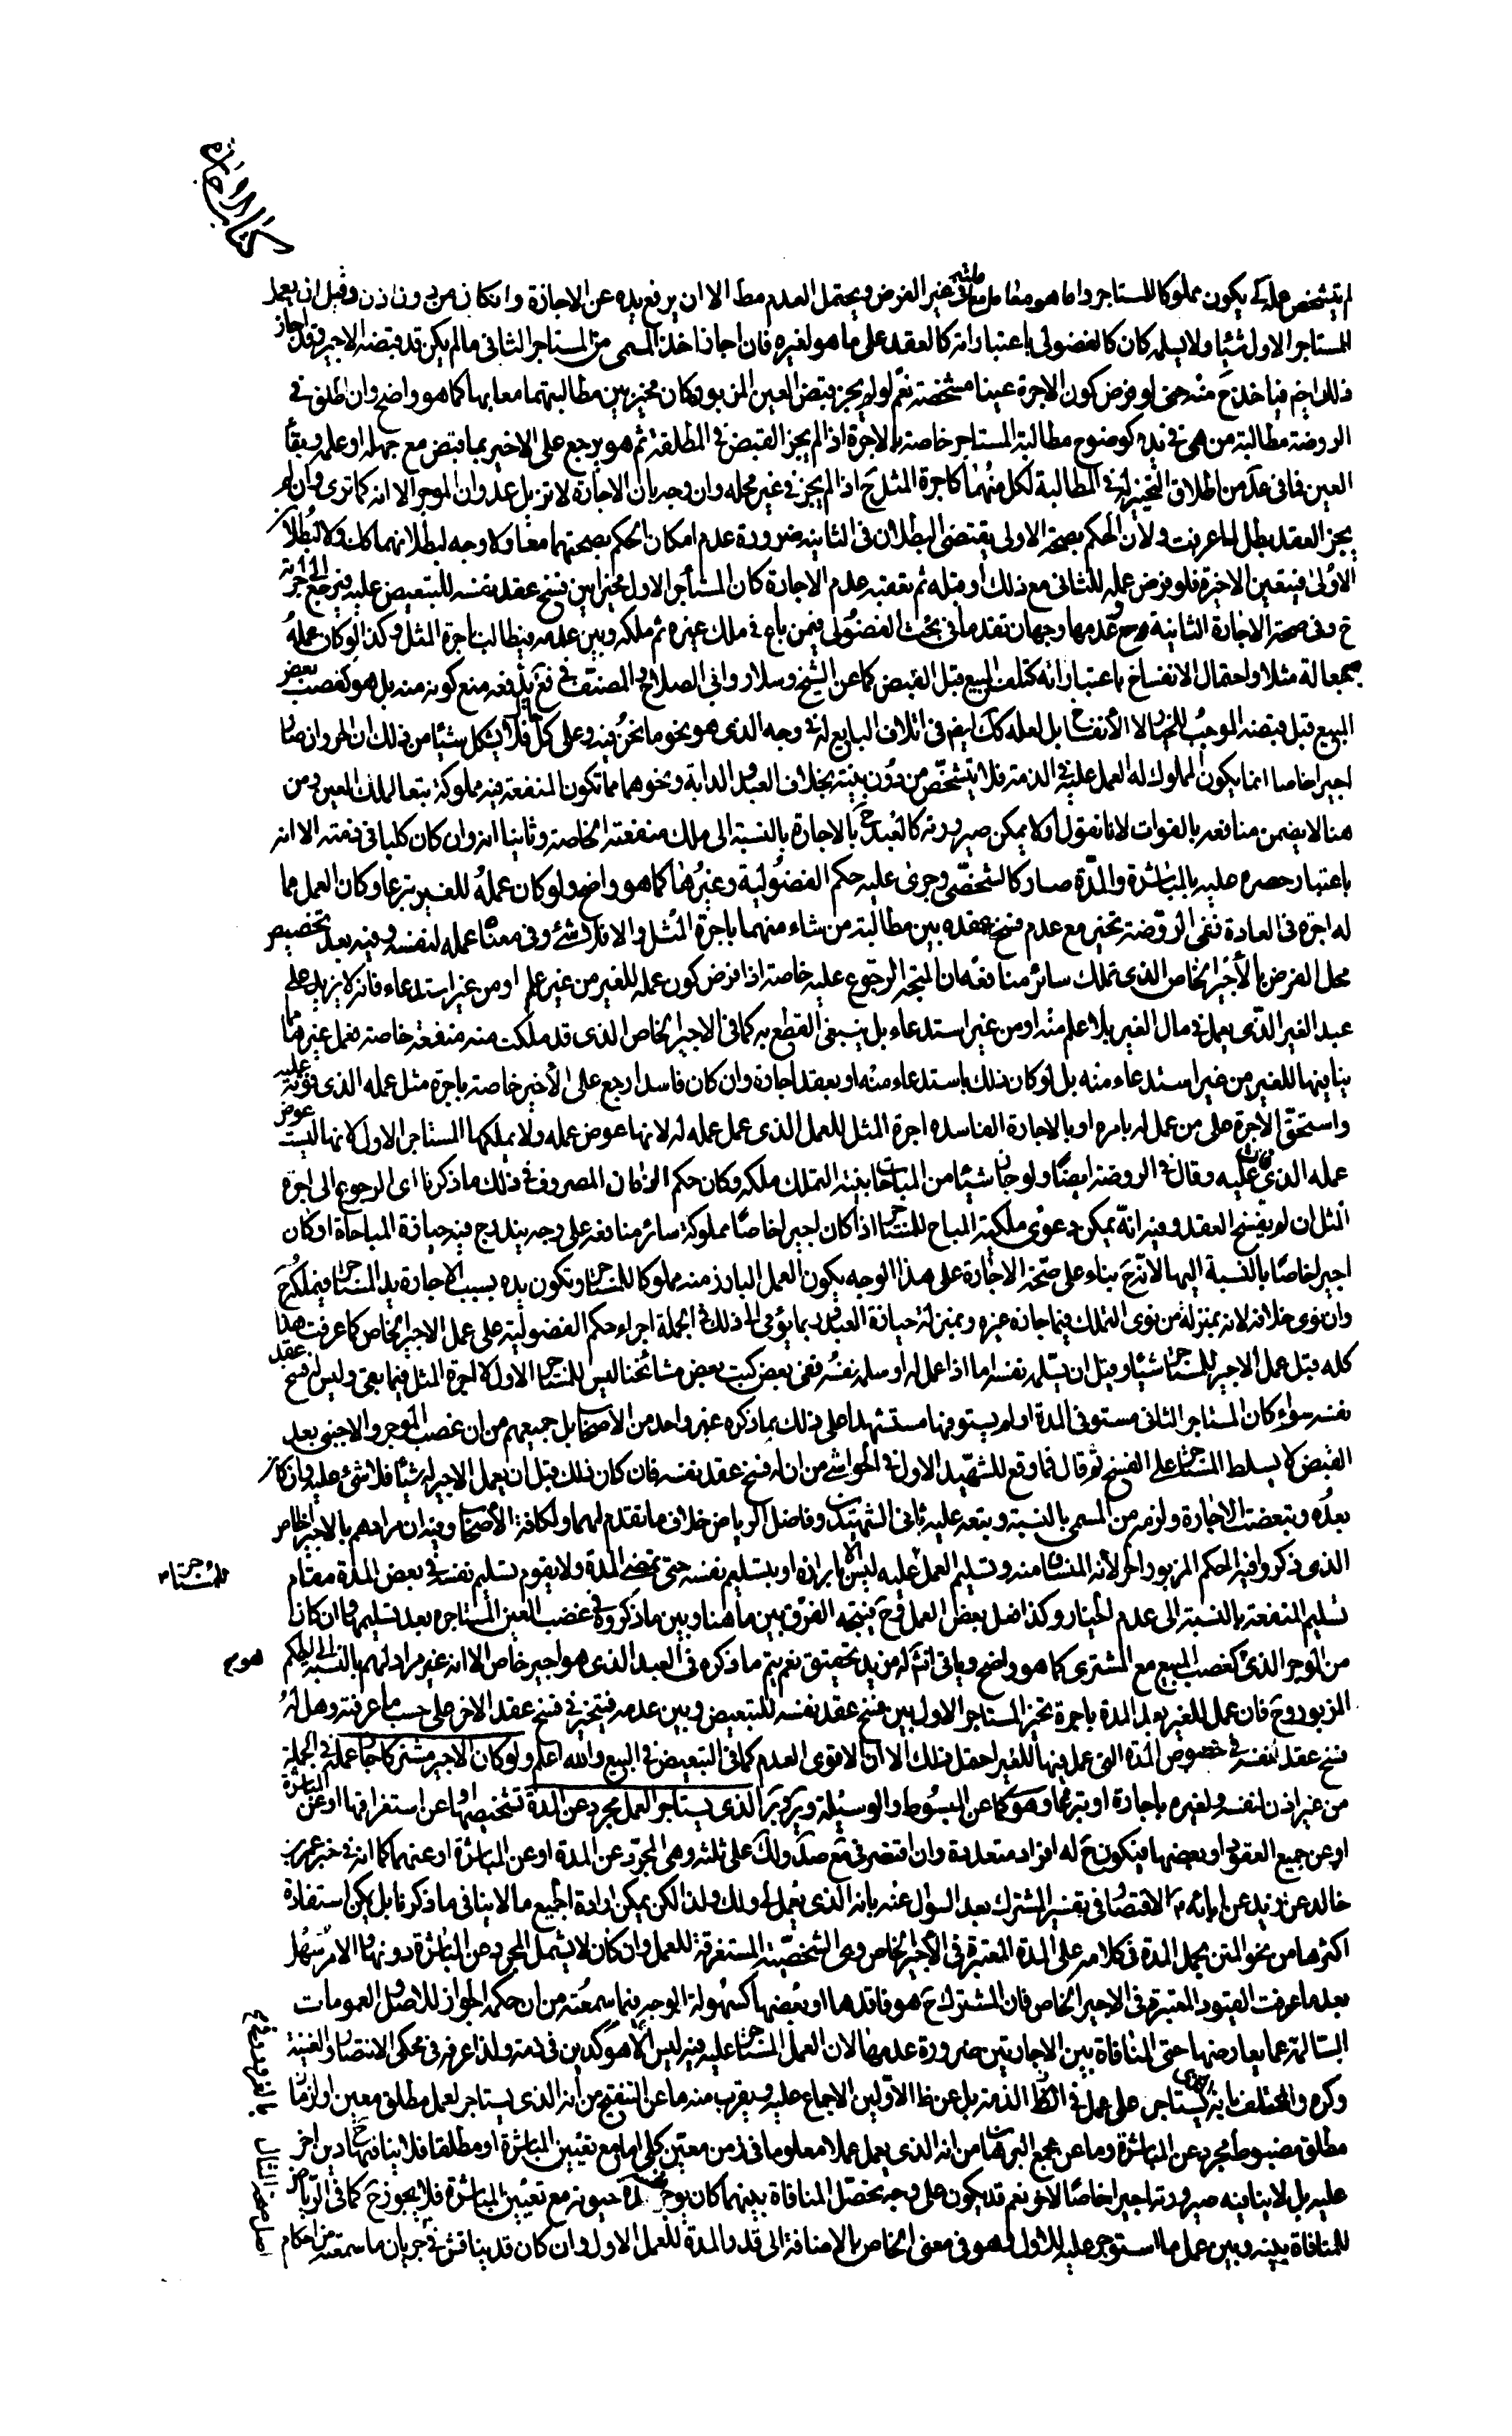 كتاب الاجارة
لم يتشخص عمله كي يكون مملوكا للمستاجر واما هو معامل غير الفرض ويحتمل العدم مط الا ان يرفع يده عن الاجازة وان كان من دون اذن وقبل ان يعمل
المستاجر الاول شيئا ولا يسلمه كان كالفضولي باعتبار انه كالعقد على ما هو لغيره فان اجاز اخذ المسمى من المستاجر الثاني ما لم يكن قد قبضه الاجير وقد اجاز
ذلك ايضا فياخذ ح منه حتى لو فرض كون الاجرة عينا مشخصة نعم لو لم يجز قبض العين المزبورة كان مخير بين مطالبتهما معا بها كما هو واضح وان اطلق في
الروضة مطالبة من هي في يده كوضوح مطالبة المستاجر خاصة بالاجرة اذا لم يجز القبض في المطلقة ثم هو يرجع على الاخير بما قبض مع جهله او علمه وبقاء
العين فما في عد من اطلاق التخيير له في المطالبة لكل منهما كاجرة المثل ح اذا لم يجز في غير محله وان وجه بان الاجازة لا تزيل عدوان الموجر الا انه كما ترى وان لم
يجز العقد بطل لما عرفت ولان الحكم بصحة الاولى يقتضي البطلان في الثانية ضرورة عدم امكان الحكم بصحتهما معا ولا وجه لبطلانهما كان ولا لبطلان
الاولى فيتعين الاخيرة فلو فرض عمله للثاني مع ذلك او قبله ثم تعقبه عدم الاجازة كان المستأجر الاول مخيرا بين فسخ عقد نفسه للتبعيض عليه فيرجع الى اجرته
ح وفي صحة الاجارة الثانية ح وعدمها وجهان تقدما في بحث الفضولي فيمن باع في ملك غيره ثم ملكه وبين عدمه فيطالب باجرة المثل وكذا لو كان عمله
بجعالة مثلا واحتمال الانفساخ باعتبار انه كتلف المبيع قبل القبض كما عن الشيخ وسلار وابي الصلاح والمصنف في نع يدفعه منع كونه منه بل هو كغصب بعض
المبيع قبل قبضه الموجب للخيار لا الانفساخ بل لعله كك ايضا في اتلاف البايع له في وجه الذي هو نحو ما نحن فيه وعلى كل فلا يشكل شيئا من ذلك ان الحر وان صار
اجيرا خاصا انما يكون المملوك له العمل عليه في الذمة فلا يتشخص من دون بنية بخلاف العبد والدابة ونحوهما مما تكون المنفعة فيه مملوكة تبعا لملك العين ومن
هنا لا يضمن منافعه بالفوات لانا نقول اولا يمكن صيرورته كالعبد ح بالاجارة بالنسبة الى ملك منفعته الخاصة وثانيا انه وان كان كليا في ذمته الا انه
باعتبار حصره عليه بالمباشرة والمدة صار كالشخصي وجرى عليه حكم الفضولية وغيرها كما هو واضح ولو كان عمله للغير تبرعا وكان العمل مما
له اجرة في العادة ففي الروضة تخير مع عدم فسخ عقده بين مطالبة من شاء منهما باجرة المثل والا فلا شئ وفي معناه عمله لنفسه وفيه بعد تخصيص
محل الفرض بالاجير الخاص الذي تملك سائر منافعه ان المتجه الرجوع عليه خاصة اذا فرض كون عمله للغير من غير علم او من غير استدعاء فانه لا يزيد على
عبد الغير الذي يعمل في مال الغير بلا علم منه او من غير استدعاء بل ينبغي القطع به كما في الاجير الخاص الذي قد ملكت منه منفعة خاصة فعمل غيرها مما
ينافيها للغير من غير استدعاء منه بل لو كان ذلك باستدعاء منه او بعقد اجارة وان كان فاسدا رجع على الاخير خاصة باجرة مثل عمله الذي فوته عليه
واستحق الاجرة على من عمل له بامره او بالاجارة الفاسده اجرة المثل للعمل الذي عمل عمله له لانها عوض عمله ولا يملكها المستاجر الاول لانها ليست عوض
عمله الذي فات عليه وقال في الروضة ايضا ولو حاز شيئا من المباحات بنية التملك ملكه وكان حكم الزمان المصروف في ذلك ما ذكرنا اي الرجوع الى اجرة
المثل ان لم يفسخ العقد وفيه انه يمكن دعوى ملكية المباح للمستاجر اذا كان اجيرا خاصا مملوكة سائر منافعه على وجه يندرج فيه حيازة المباحات او كان
اجيرا خاصا بالنسبة اليها لانه ح بناء على صحة الاجارة على هذا الوجه يكون العمل البارز منه مملوكا للمستاجر وتكون يده بسبب الاجارة يد المستاجر فيملكه ح
وان نوى خلافه لانه بمنزلة من نوى التملك فيما حازه غيره وبمنزلة حيازة العبد وبما يؤمى الى ذلك في الجملة اجراء حكم الفضولية على عمل الاجير الخاص كما عرفت هذا
كله قبل عمل الاجير للمستاجر شيئا وقبل ان يسلمه نفسه اما اذا عمل له او سلمه نفسه ففي بعض كتب بعض مشائخنا ليس للمستاجر الاول الا اجرة المثل فيما بقي وليس له فسخ عقد
نفسه سواء كان المستاجر الثاني مستوفى المدة او لم يستوفها مستشهدا على ذلك بما ذكره غير واحد من الاصحاب بل جميعهم من ان غصب الموجر والاجنبي بعد
القبض لا يسلط المستاجر على الفسخ ثم قال فما وقع للشهيد الاول في الحواشي من ان له فسخ عقد نفسه فان كان ذلك قبل ان يعمل الاجير له شيئا فلا شئ عليه وان كان
بعده وتبعضت الاجارة ولزمه من المسمى بالنسبة وتبعه عليه ثاني الشهيدين وفاضل الرياض خلاف ما تقدم لهما ولكافة الاصحاب وفيه ان مرادهم بالاجير الخاص
الذي ذكروا فيه الحكم المزبور الحر لانه المنشا منه وتسليم العمل عليه ليس الا بابرازه او بتسليم نفسه حتى تمضي المدة ولا يقوم تسليم نفسه في بعض المدة مقام
تسليم المنفعة بالنسبة الى عدم الخيار وكذا فعل بعض العمل وح فيتجه الفرق بين ما هنا وبين ما ذكروه في غصب العين المستاجرة بعد تسليمها وان كان
من الموجر الذي كغصب المبيع مع المشتري كما هو واضح وياتي انشاء له مزيد تحقيق نعم يتم ما ذكره في العبد الذي هو اجير خاص الا انه غير مراد لهم بالنسبة الى الحكم
المزبور وح فان عمل للغير بعد المدة باجرة تخير المستاجر الاول بين فسخ عقد نفسه للتبعيض وبين عدمه فيتخير في فسخ عقد الاخر على حسب ما عرفته وهل له
فسخ عقد نفسه في خصوص المدة التي عمل فيها للغير احتمل ذلك الا ان الاقوى العدم كما في التبعيض في البيع والله اعلم ولو كان الاجير مشتركا جاز عمله في الجملة
من غير اذن لنفسه ولغيره باجارة او تبرعا وهو كما عن المبسوط والوسيلة وير وئر الذي يستاجر لعمل مجرد عن المدة تشخيصها او عن استغراقها او عن المباشرة
او عن جميع القيود او بعضها فيكون ح له افراد متعددة وان اقتصر في مع صد ولك على ثلثة وهي المجرد عن المدة او عن المباشرة او عنهما كما انه في خبر عمرو بن
خالد عن زيد عن ابائه م الاقتصار في تفسير المشترك بعد السؤال عنه بانه الذي يعمل لي ولك ولذا لكن يمكن ارادة الجميع ما لا ينافي ما ذكرنا بل يمكن استفادة
اكثرها من نحو المتن بحمل المدة في كلامه على المدة المعتبرة في الاجير الخاص وهي الشخصية المستغرقة للعمل وان كان لا يشمل المجرد عن المباشرة دونها والامر سهل
بعد ما عرفت القيود المعتبرة في الاجير الخاص فان المشترك ح هو فاقدها او بعضها كسهولة الوجه فيما سمعته من ان حكمه الجواز للاصل والعمومات
السالمة عما يعارضها حتى المنافاة بين الاجارتين ضرورة عدمها لان العمل المستاجر عليه فيه ليس الا هو كدين في ذمته ولذا عرفه في محكي الانتصار والغنية
وكره والمختلف بانه الذي يستاجر على عمل في الذمة بل عن ظ الاولين الاجماع عليه ويقرب منه ما عن التنقيح من انه الذي يستاجر لعمل مطلق معين او لزمان
مطلق مضبوط مجرد عن المباشرة وما عن مجمع البرهان من انه الذي يعمل عملا معلوما في زمن معين كلي اما مع تعيين المباشرة او مطلقا فلا ينافيها ح دين اخر
عليه بل لا ينافيه صيرورته اجيرا خاصا لاخر نعم قد يكون على وجه يحصل المنافاة بينهما كان يوجر نفسه مدة حيوته مع تعيين المباشرة فلا يجوز ح كما في الرياض
للمنافاة بينه وبين عمل ما استوجر عليه للاول وهو في معنى الخاص بالاضافة الى قدر المدة للعمل الاول وان كان قد يناقش في جريان ما سمعته من احكام
للمستاجر
هو م